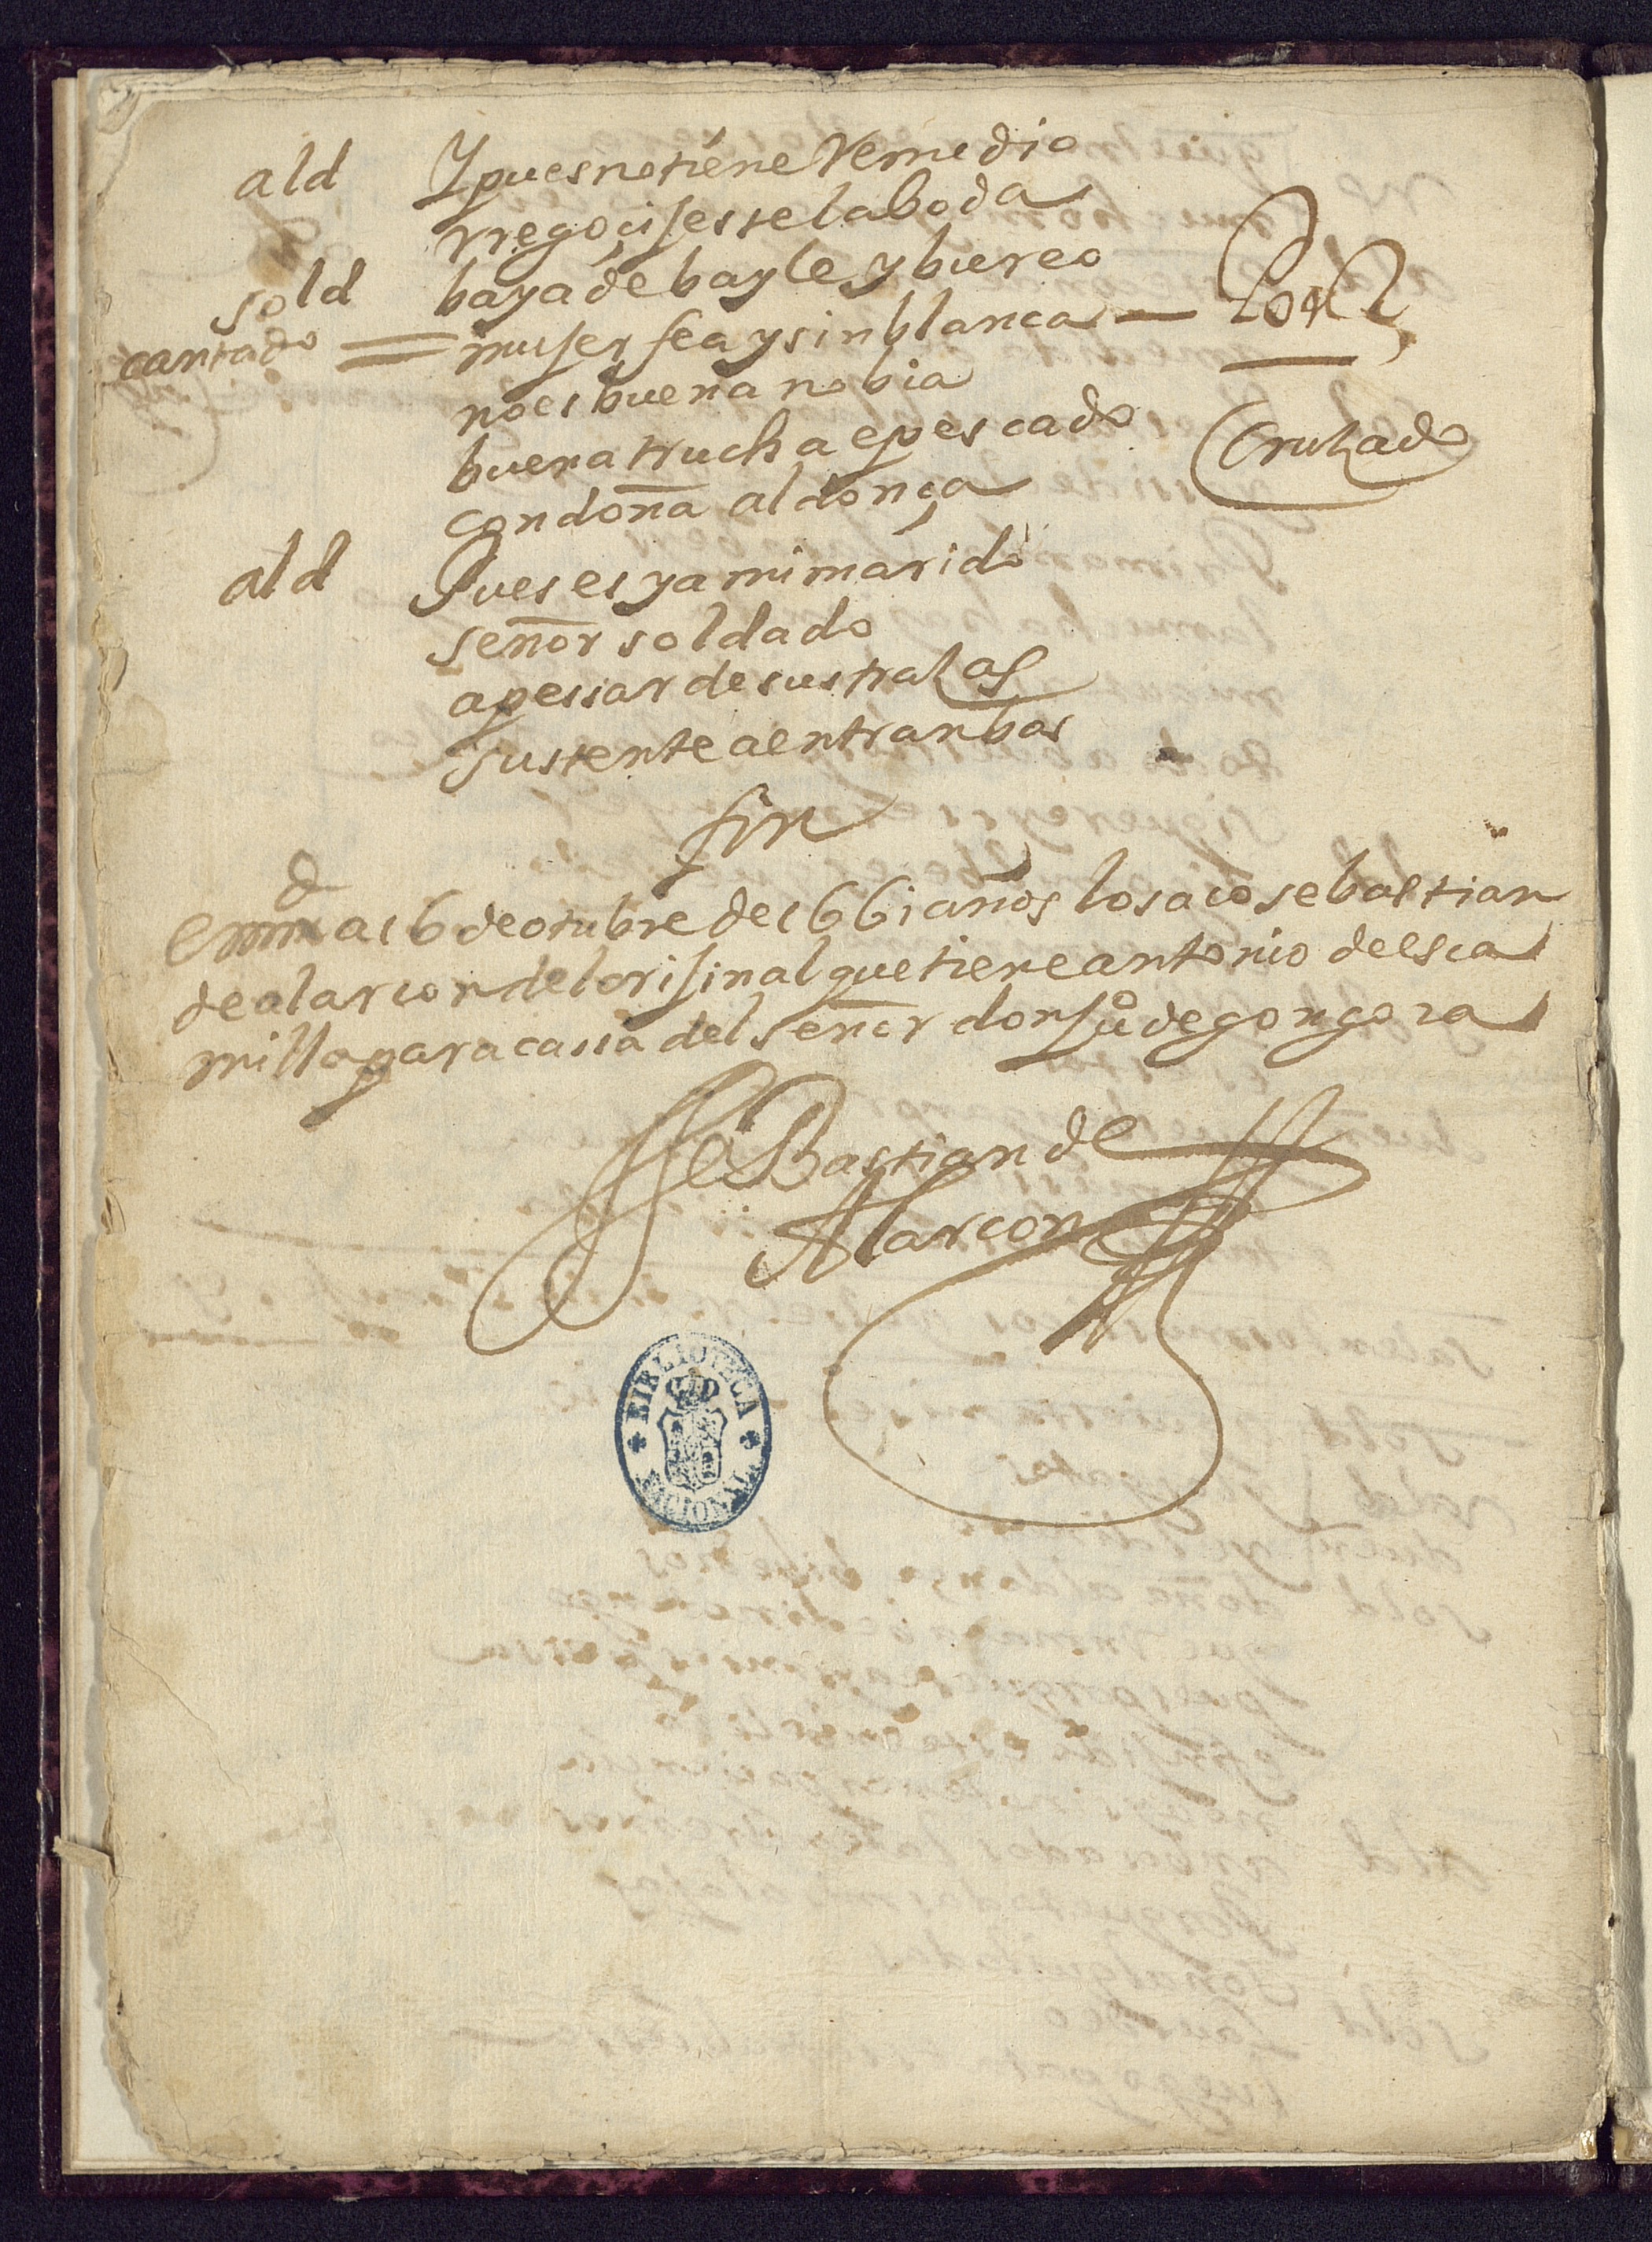 ald Y pues no tiene Remedio
rregoçijesse la boda
sold baya de bayle y bureo
cantado = mujer fea y sin blanca —
no es buena nobia
buena trucha e pescado
con doña aldonça
Cruzado
ald Pues es ya mi marido
señor soldado
a pessar de sus trazas
sustente a entranbos
fin
en md a 16 de otubre de 1661 años lo saco sebastian
de alarcon del orijinal que tiene antonio de esca
milla para cassa del señor don ju° de gongora
SeBastian de
Alarcon
BIBLIOTECA NACIONAL